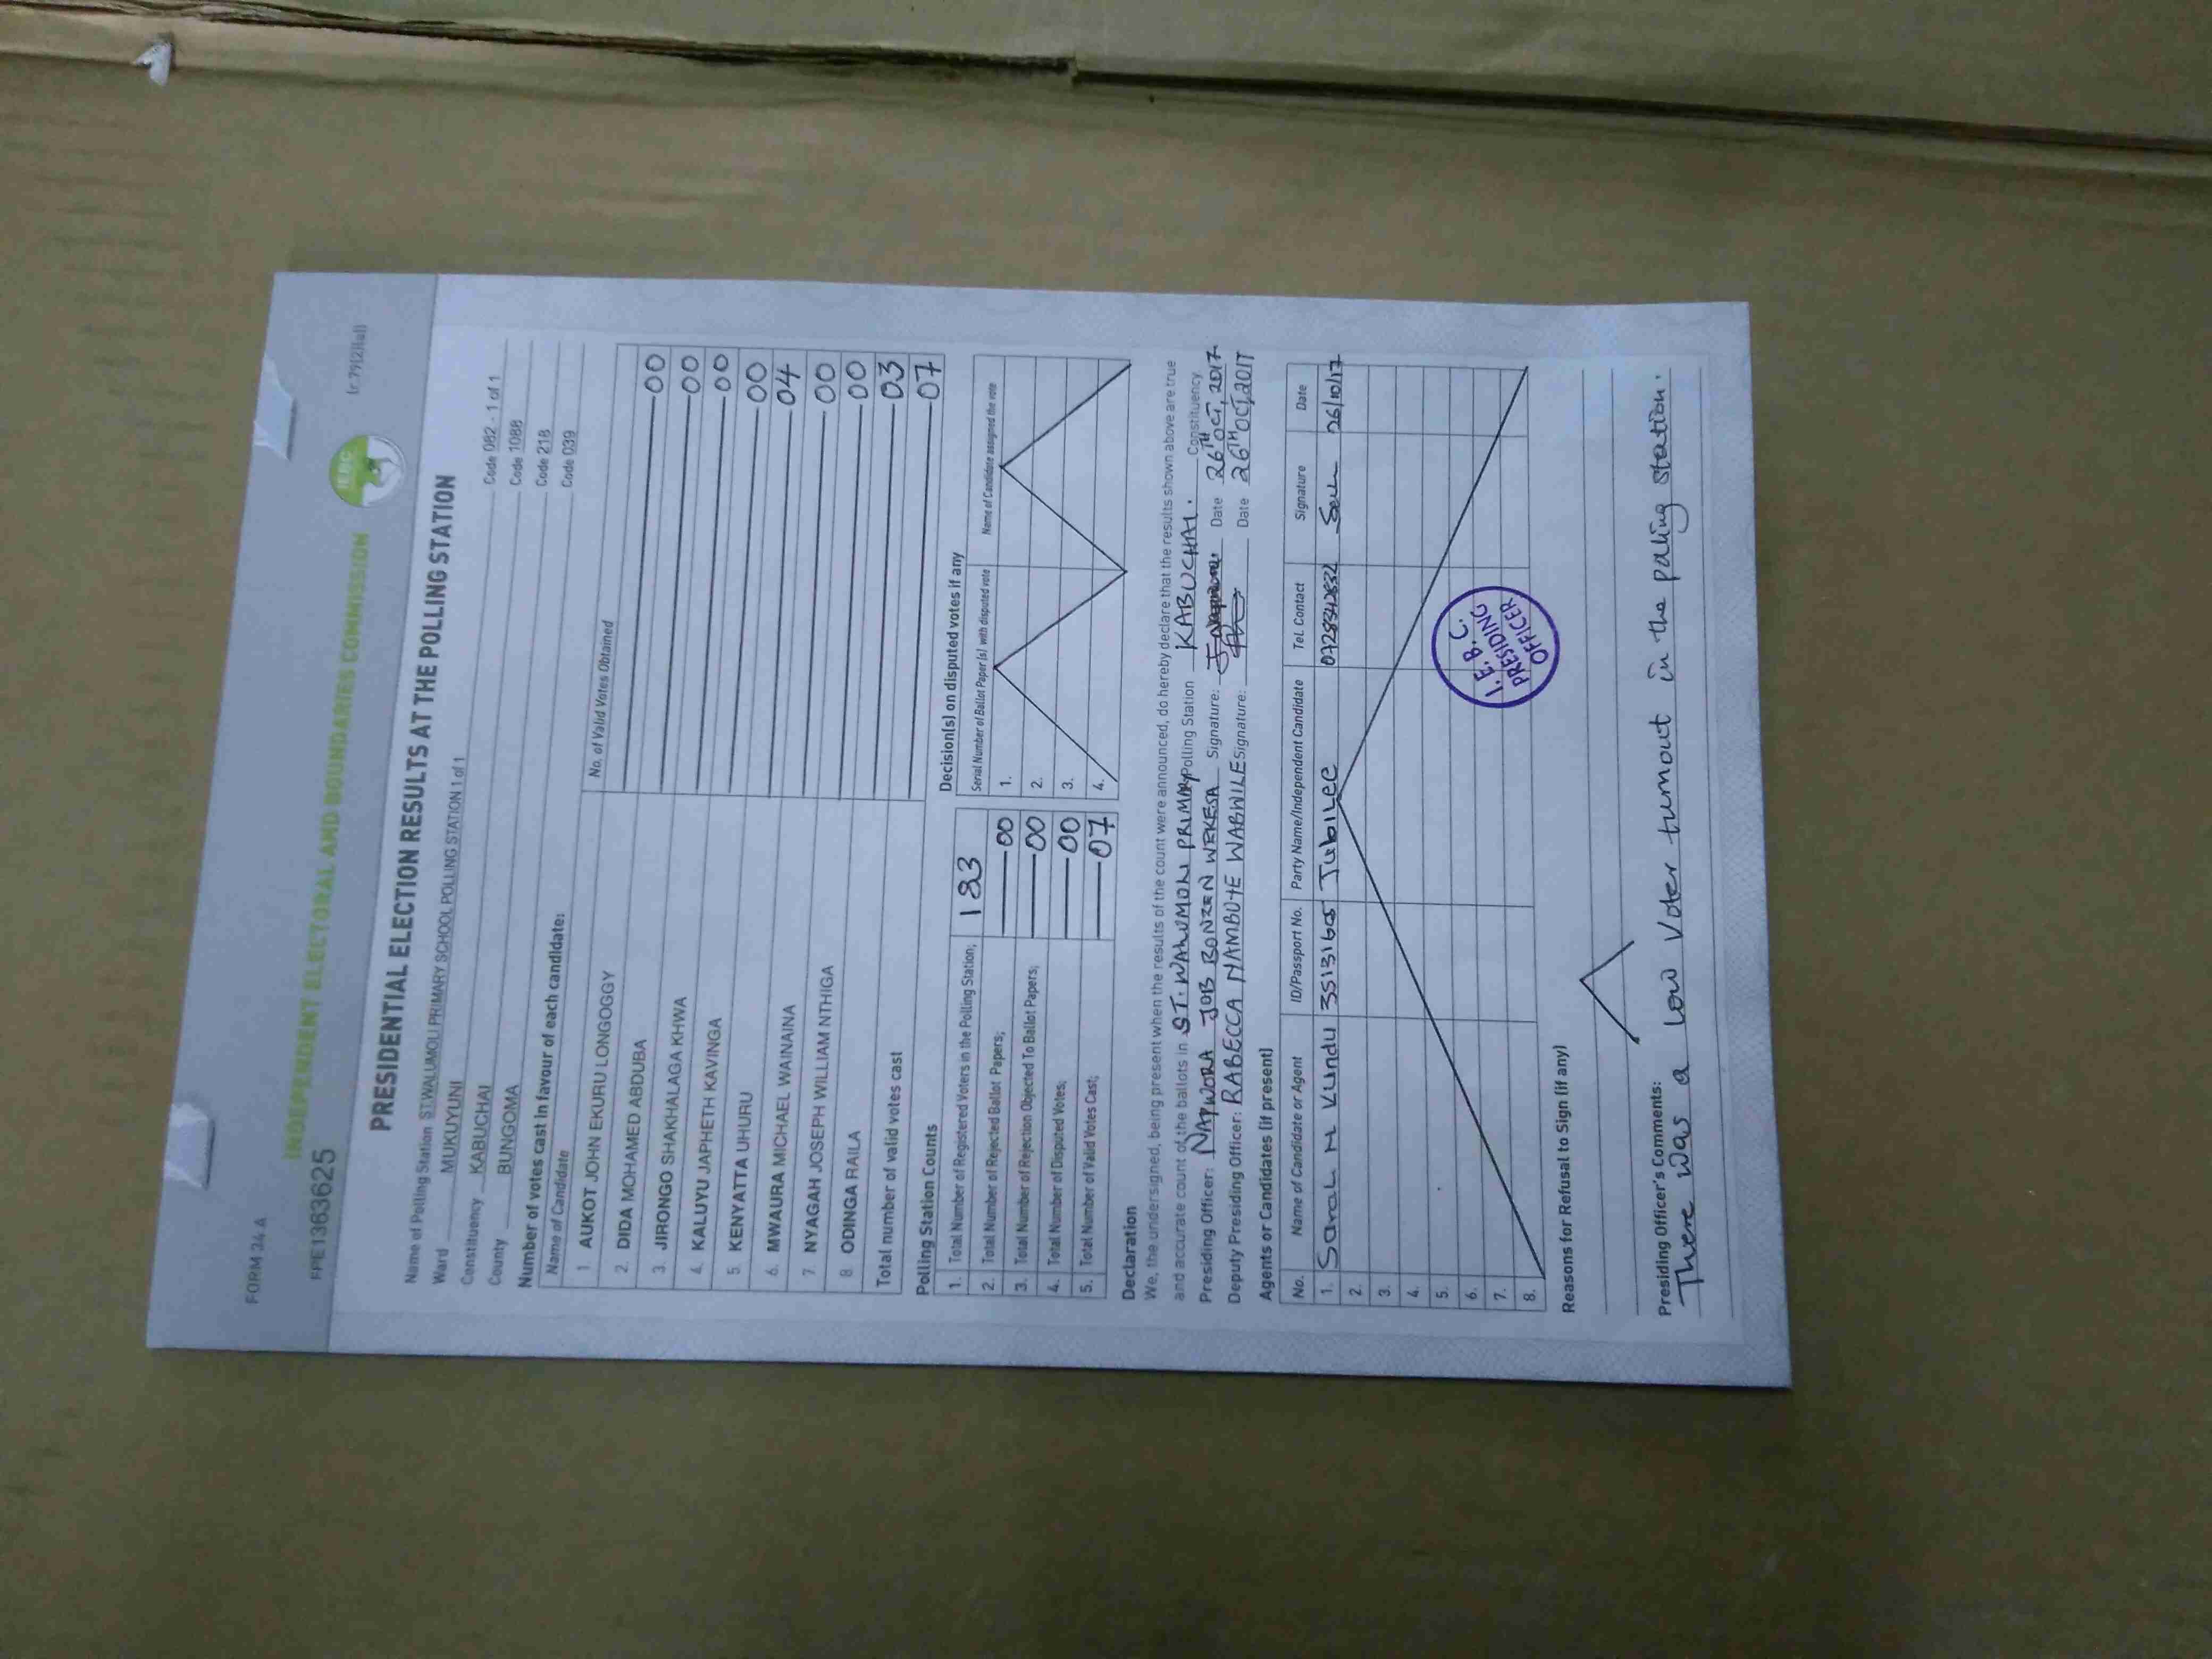 FORM 34 A
INDEPENDENT ELECTORAL AND BOUNDARIES COMMISSION
IEBC
(r.79(2)(a))
FPE1363625
PRESIDENTIAL ELECTION RESULTS AT THE POLLING STATION
Name of Polling Station ST.WALUMOLI PRIMARY SCHOOL POLLING STATION 1 of 1 Code 082 - 1 of 1
Ward MUKUYUNI Code 1088
Constituency KABUCHAI Code 218
County BUNGOMA Code 039
Number of votes cast in favour of each candidate:
Name of Candidate No. of Valid Votes Obtained
1. AUKOT JOHN EKURU LONGOGGY 00
2. DIDA MOHAMED ABDUBA 00
3. JIRONGO SHAKHALAGA KHWA 00
4. KALUYU JAPHETH KAVINGA 00
5. KENYATTA UHURU 04
6. MWAURA MICHAEL WAINAINA 00
7. NYAGAH JOSEPH WILLIAM NTHIGA 00
8. ODINGA RAILA 03
Total number of valid votes cast 07
Polling Station Counts
1. Total Number of Registered Voters in the Polling Station; 183
2. Total Number of Rejected Ballot Papers; 00
3. Total Number of Rejection Objected To Ballot Papers; 00
4. Total Number of Disputed Votes; 00
5. Total Number of Valid Votes Cast; 07
Decision(s) on disputed votes if any
Serial Number of Ballot Paper(s) with disputed vote Name of Candidate assigned the vote
1.
2.
3.
4.
Declaration
We, the undersigned, being present when the results of the count were announced, do hereby declare that the results shown above are true
and accurate count of the ballots in ST. WALUMOLI PRIMARY Polling Station KABUCHAI. Constituency
Presiding Officer: NAPWORA JOB BONZEN WEKESA Signature: Date 26TH OCT, 2017
Deputy Presiding Officer: RABECCA NAMBUYE WABWILE Signature: Date 26TH OCT, 2017
Agents or Candidates (if present)
No. Name of Candidate or Agent ID/Passport No. Party Name/Independent Candidate Tel. Contact Signature Date
1. Sarah N Kundu 35131605 Jubilee 0728342832 Sarah 26/10/17
2.
3.
4.
5.
6.
7.
8.
I.E.B.C.
PRESIDING
OFFICER
Reasons for Refusal to Sign (if any)
Presiding Officer's Comments:
There was a low Voter turnout in the poling station.